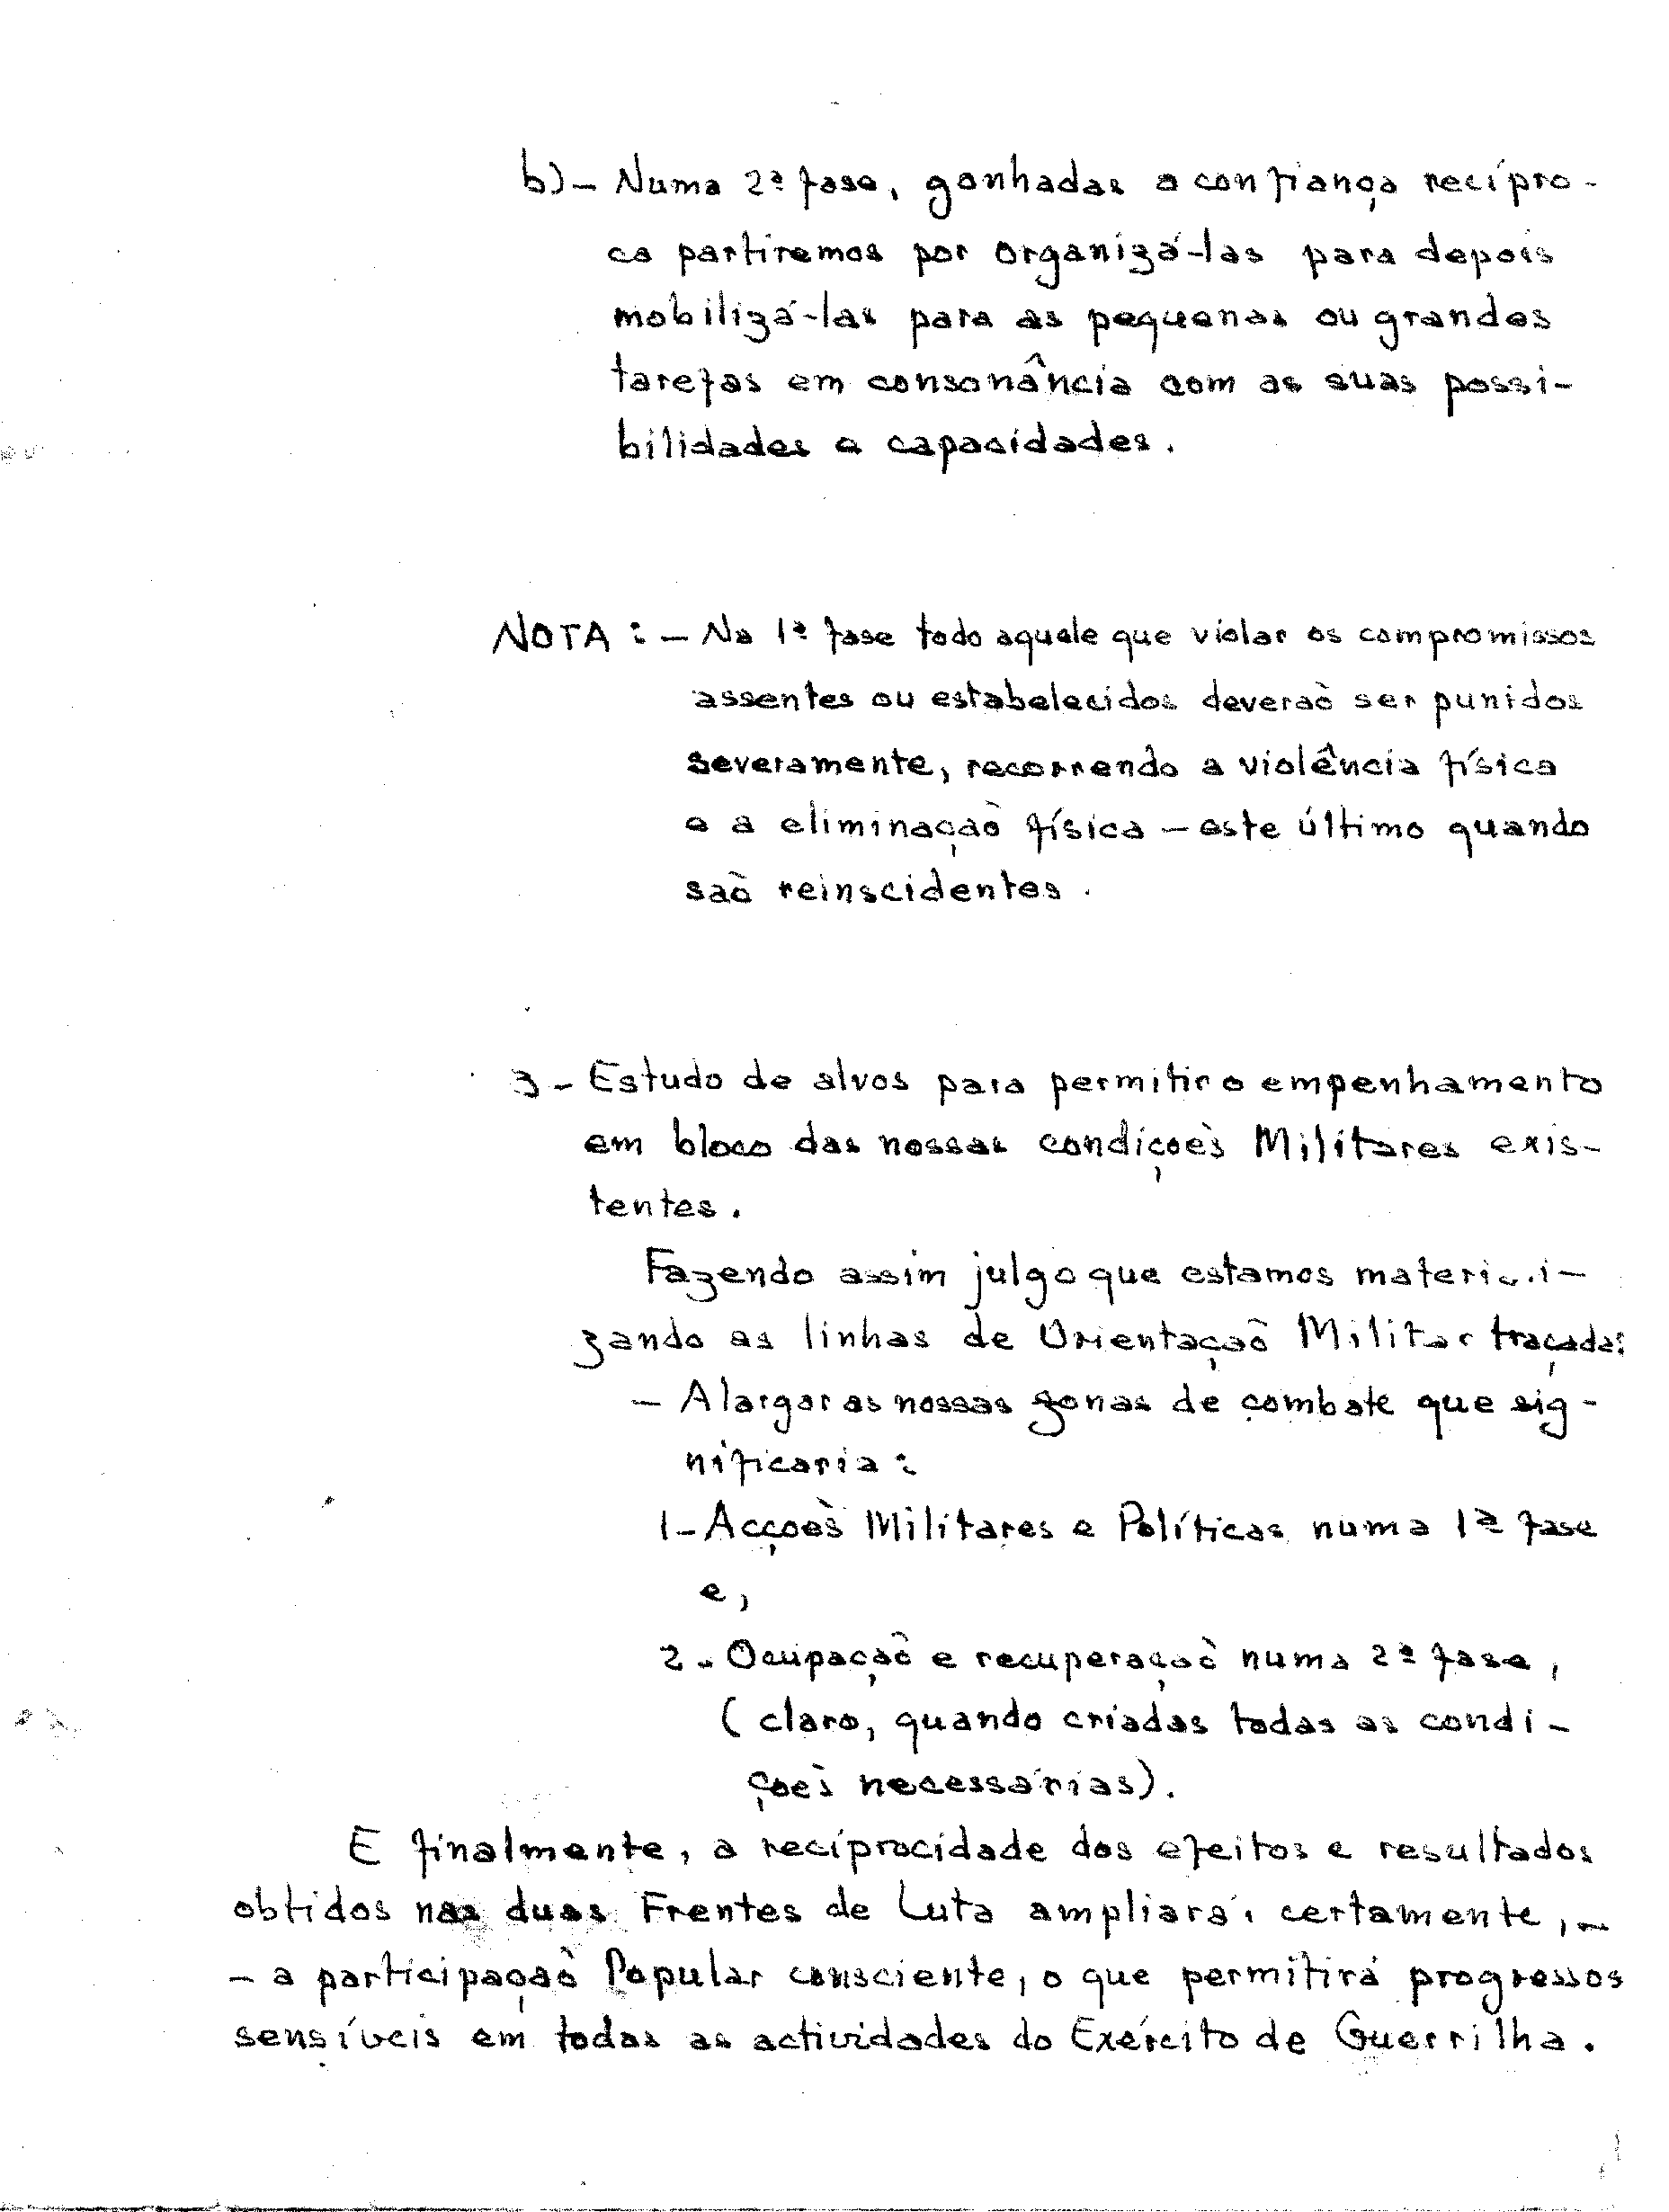 b) - Numa 2ª fase, ganhadas a confiança recípro-
ca partiremos por organizá-las para depois
mobilizá-las para as pequenas ou grandes
tarefas em consonância com as suas possi-
bilidades e capacidades.
NOTA : - Na 1ª fase todo aquele que violar os compromissos
assentes ou estabelecidos deveraõ ser punidos
severamente, recorrendo a violência física
e a eliminaçaõ física - este último quando
saõ reinscidentes.
3 - Estudo de alvos para permitir o empenhamento
em bloco das nossas condiçoès Militares exis-
tentes.
Fazendo assim julgo que estamos materiali-
zando as linhas de Orientaçaõ Militar traçadas
- Alargar as nossas zonas de combate que sig-
nificaria :
1 - Acçoès Militares e Políticas numa 1ª fase
e,
2 - Ocupaçaõ e recuperaçaõ numa 2ª fase,
( claro, quando criadas todas as condi-
çoès necessárias).
E finalmente, a reciprocidade dos efeitos e resultados
obtidos nas duas Frentes de Luta ampliará, certamente, -
- a participaçaõ Popular consciente, o que permitirá progressos
sensíveis em todas as actividades do Exército de Guerrilha.